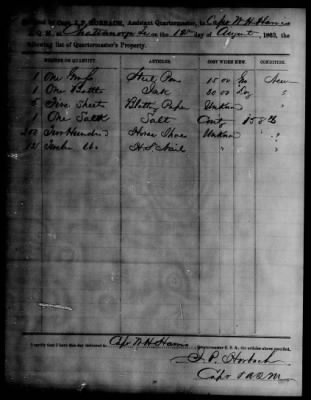 Received of Capt. J. P. HORBACH, Assistant Quartermaster, to Capt W. H. Harris
Chattanooga on the 1st day of August 1863, the
following list of Quartermaster's Property.
NUMBER OR QUANTITY. ARTICLES. COST WHEN NEW. CONDITION.
1 One Steel Pens 15.00 New
1 One Bottle Ink 10.00 Doz "
5 Five Sheets Blotting Paper Unknown "
1 One Salt
200 Two Hundred Horse Shoes Unknown "
12 Twelve lbs H. S. Nails "
I certify that I have this day delivered to Capt W. H. Harris Quartermaster C. S. A., the articles above specified.
J. P. Horbach
Capt & A Q M